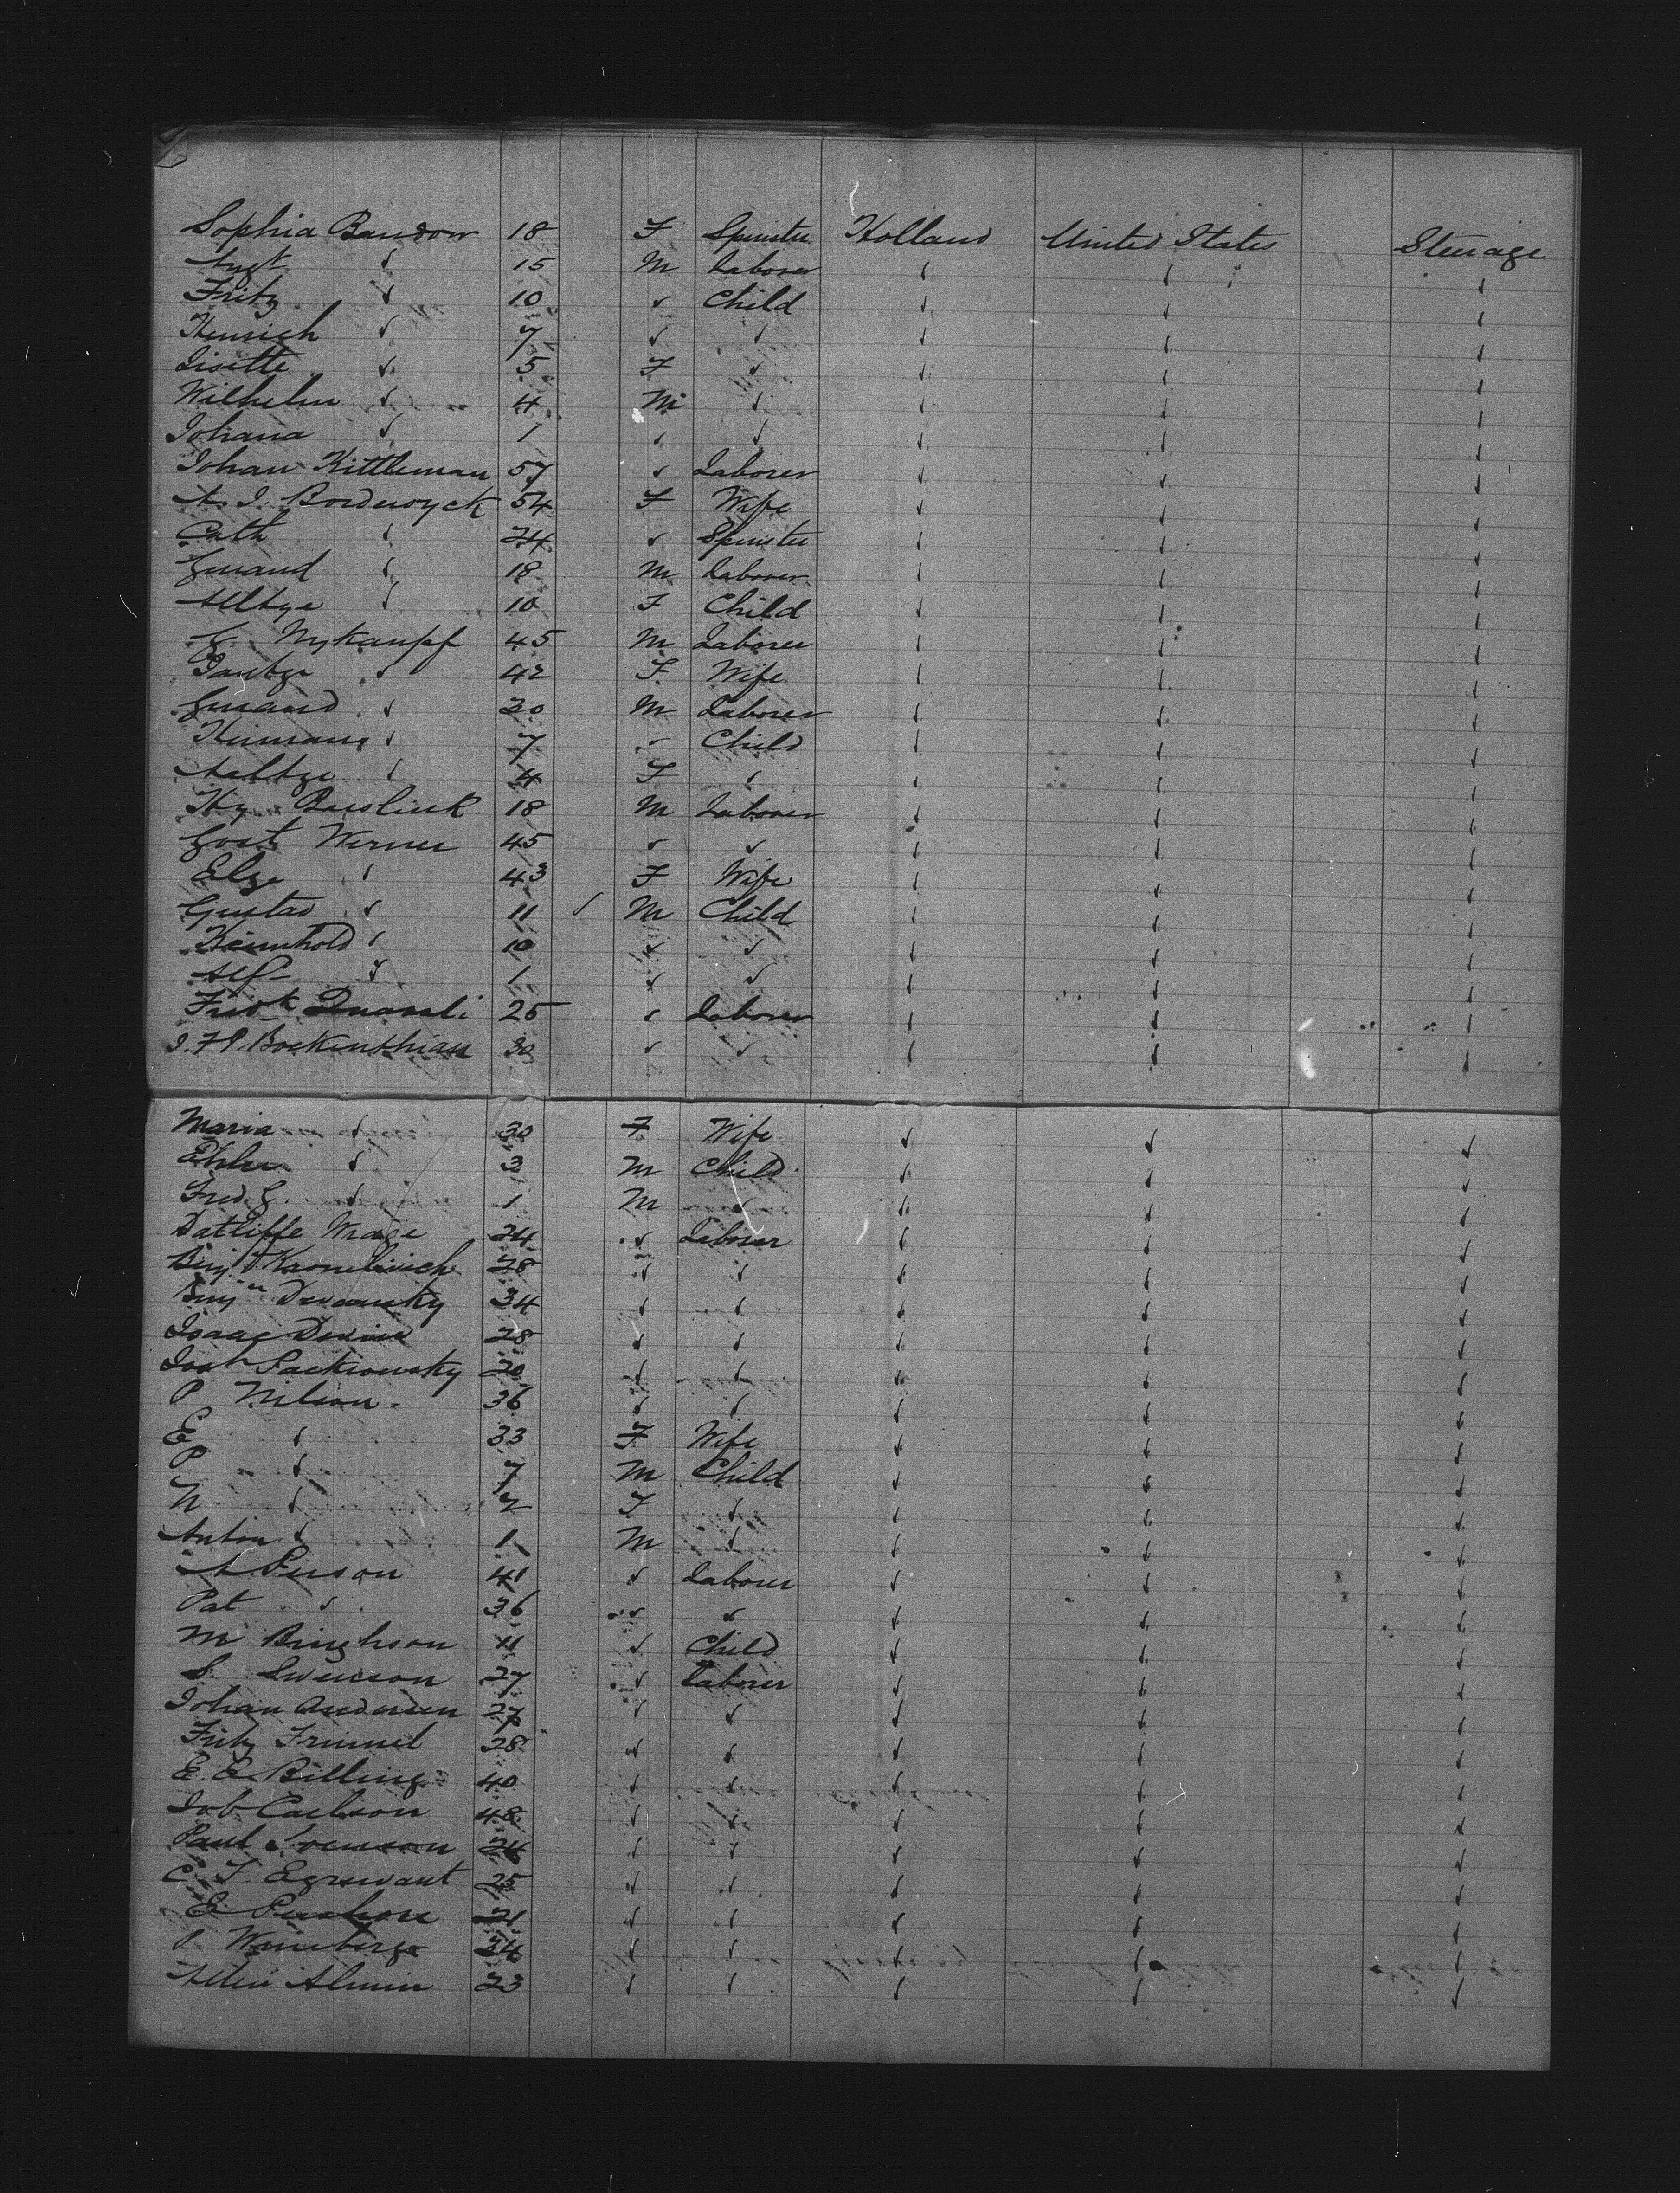 Sophia Bandow 18 F Spinster Holland United States Steerage
Augt ✓ 15 M Laborer ✓ ✓ ✓
Fritz ✓ 10 ✓ Child ✓ ✓ ✓
Heinrich ✓ 7 ✓ ✓ ✓ ✓ ✓
Lisette ✓ 5 F ✓ ✓ ✓ ✓
Wilhelm ✓ 4 M ✓ ✓ ✓ ✓
Johana ✓ 1 ✓ ✓ ✓ ✓ ✓
Johan Kittleman 57 ✓ Laborer ✓ ✓ ✓
A. J. Bordewyck 54 F Wife ✓ ✓ ✓
Cath ✓ 24 ✓ Spinster ✓ ✓ ✓
✓ 18 M Laborer ✓ ✓ ✓
Aeltze ✓ 10 F Child ✓ ✓ ✓
G Nykampf 45 M Laborer ✓ ✓ ✓
✓ 42 F Wife ✓ ✓ ✓
✓ 20 M Laborer ✓ ✓ ✓
Hermann ✓ 7 ✓ Child ✓ ✓ ✓
Aaltze ✓ 4 F ✓ ✓ ✓ ✓
Hy 18 M Laborer ✓ ✓ ✓
Gost Werner 45 ✓ ✓ ✓ ✓ ✓
Elze ✓ 43 F Wife ✓ ✓ ✓
Gustav ✓ 11 ✓ M Child ✓ ✓ ✓
Reinhold ✓ 10 ✓ ✓ ✓ ✓ ✓
Alf ✓ 1 ✓ ✓ ✓ ✓ ✓
Fredk 25 ✓ Laborer ✓ ✓ ✓
J. H. Bockenthian 30 ✓ ✓ ✓ ✓ ✓
Maria ✓ 30 F Wife ✓ ✓ ✓
Ehler ✓ 3 M Child ✓ ✓ ✓
Fred G. ✓ 1 M ✓ ✓ ✓ ✓
Datliffe Wrage 24 ✓ Laborer ✓ ✓ ✓
Benj 28 ✓ ✓ ✓ ✓ ✓
Benjn 34 ✓ ✓ ✓ ✓ ✓
Isaac 28 ✓ ✓ ✓ ✓ ✓
Packrowsky 20 ✓ ✓ ✓ ✓ ✓
P Nilson 36 ✓ ✓ ✓ ✓ ✓
E ✓ 33 F Wife ✓ ✓ ✓
P ✓ 7 M Child ✓ ✓ ✓
N ✓ F ✓ ✓ ✓ ✓
Anton ✓ 1 M ✓ ✓ ✓ ✓
A Person 41 ✓ Laborer ✓ ✓ ✓
Pat ✓ 36 ✓ ✓ ✓ ✓ ✓
M Bengtson 11 ✓ Child ✓ ✓ ✓
S Swenson 27 ✓ Laborer ✓ ✓ ✓
Johan Andersen 27 ✓ ✓ ✓ ✓ ✓
Fritz Frimmel 28 ✓ ✓ ✓ ✓ ✓
E. E. Billing 40 ✓ ✓ ✓ ✓ ✓
Joh Carlson 48 ✓ ✓ ✓ ✓ ✓
Paul Svenson 24 ✓ ✓ ✓ ✓ ✓
C. F. 25 ✓ ✓ ✓ ✓ ✓
E 21 ✓ ✓ ✓ ✓ ✓
P Winneberge 24 ✓ ✓ ✓ ✓ ✓
Almin 23 ✓ ✓ ✓ ✓ ✓